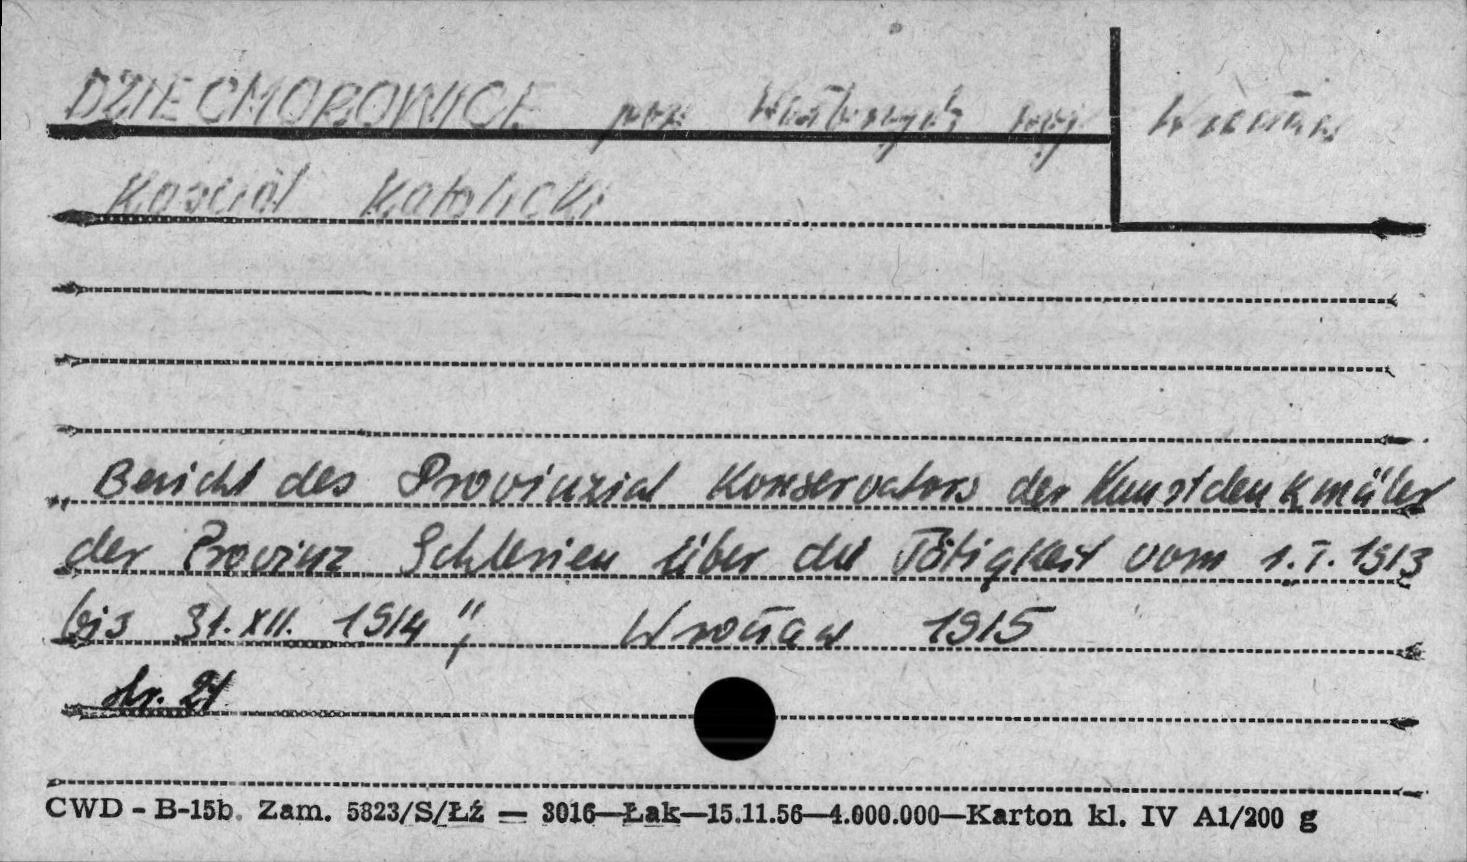 DZIEĆMOROWICE pow. Wałbrzych woj. Wrocław
Kościół Katolicki
„Bericht des Provinzial Konservators der Kunstdenkmäler
der Provinz Schlesien über die Tätigkeit vom 1.I.1913
bis 31.XII. 1914", Wrocław 1915
str. 21
CWD - B-15b. Zam. 5823/S/Łź — 3016—Łak—15.11.56—4.000.000—Karton kl. IV A1/200 g